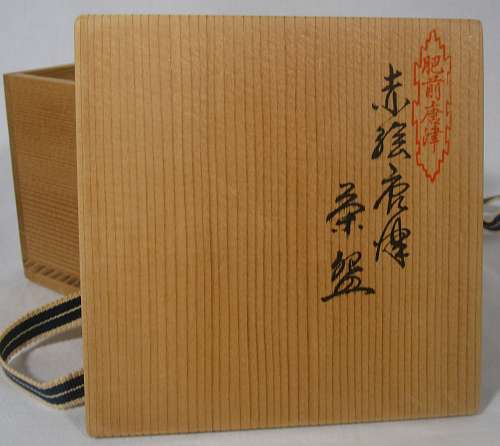 肥前唐津
赤絵唐津
茶盌